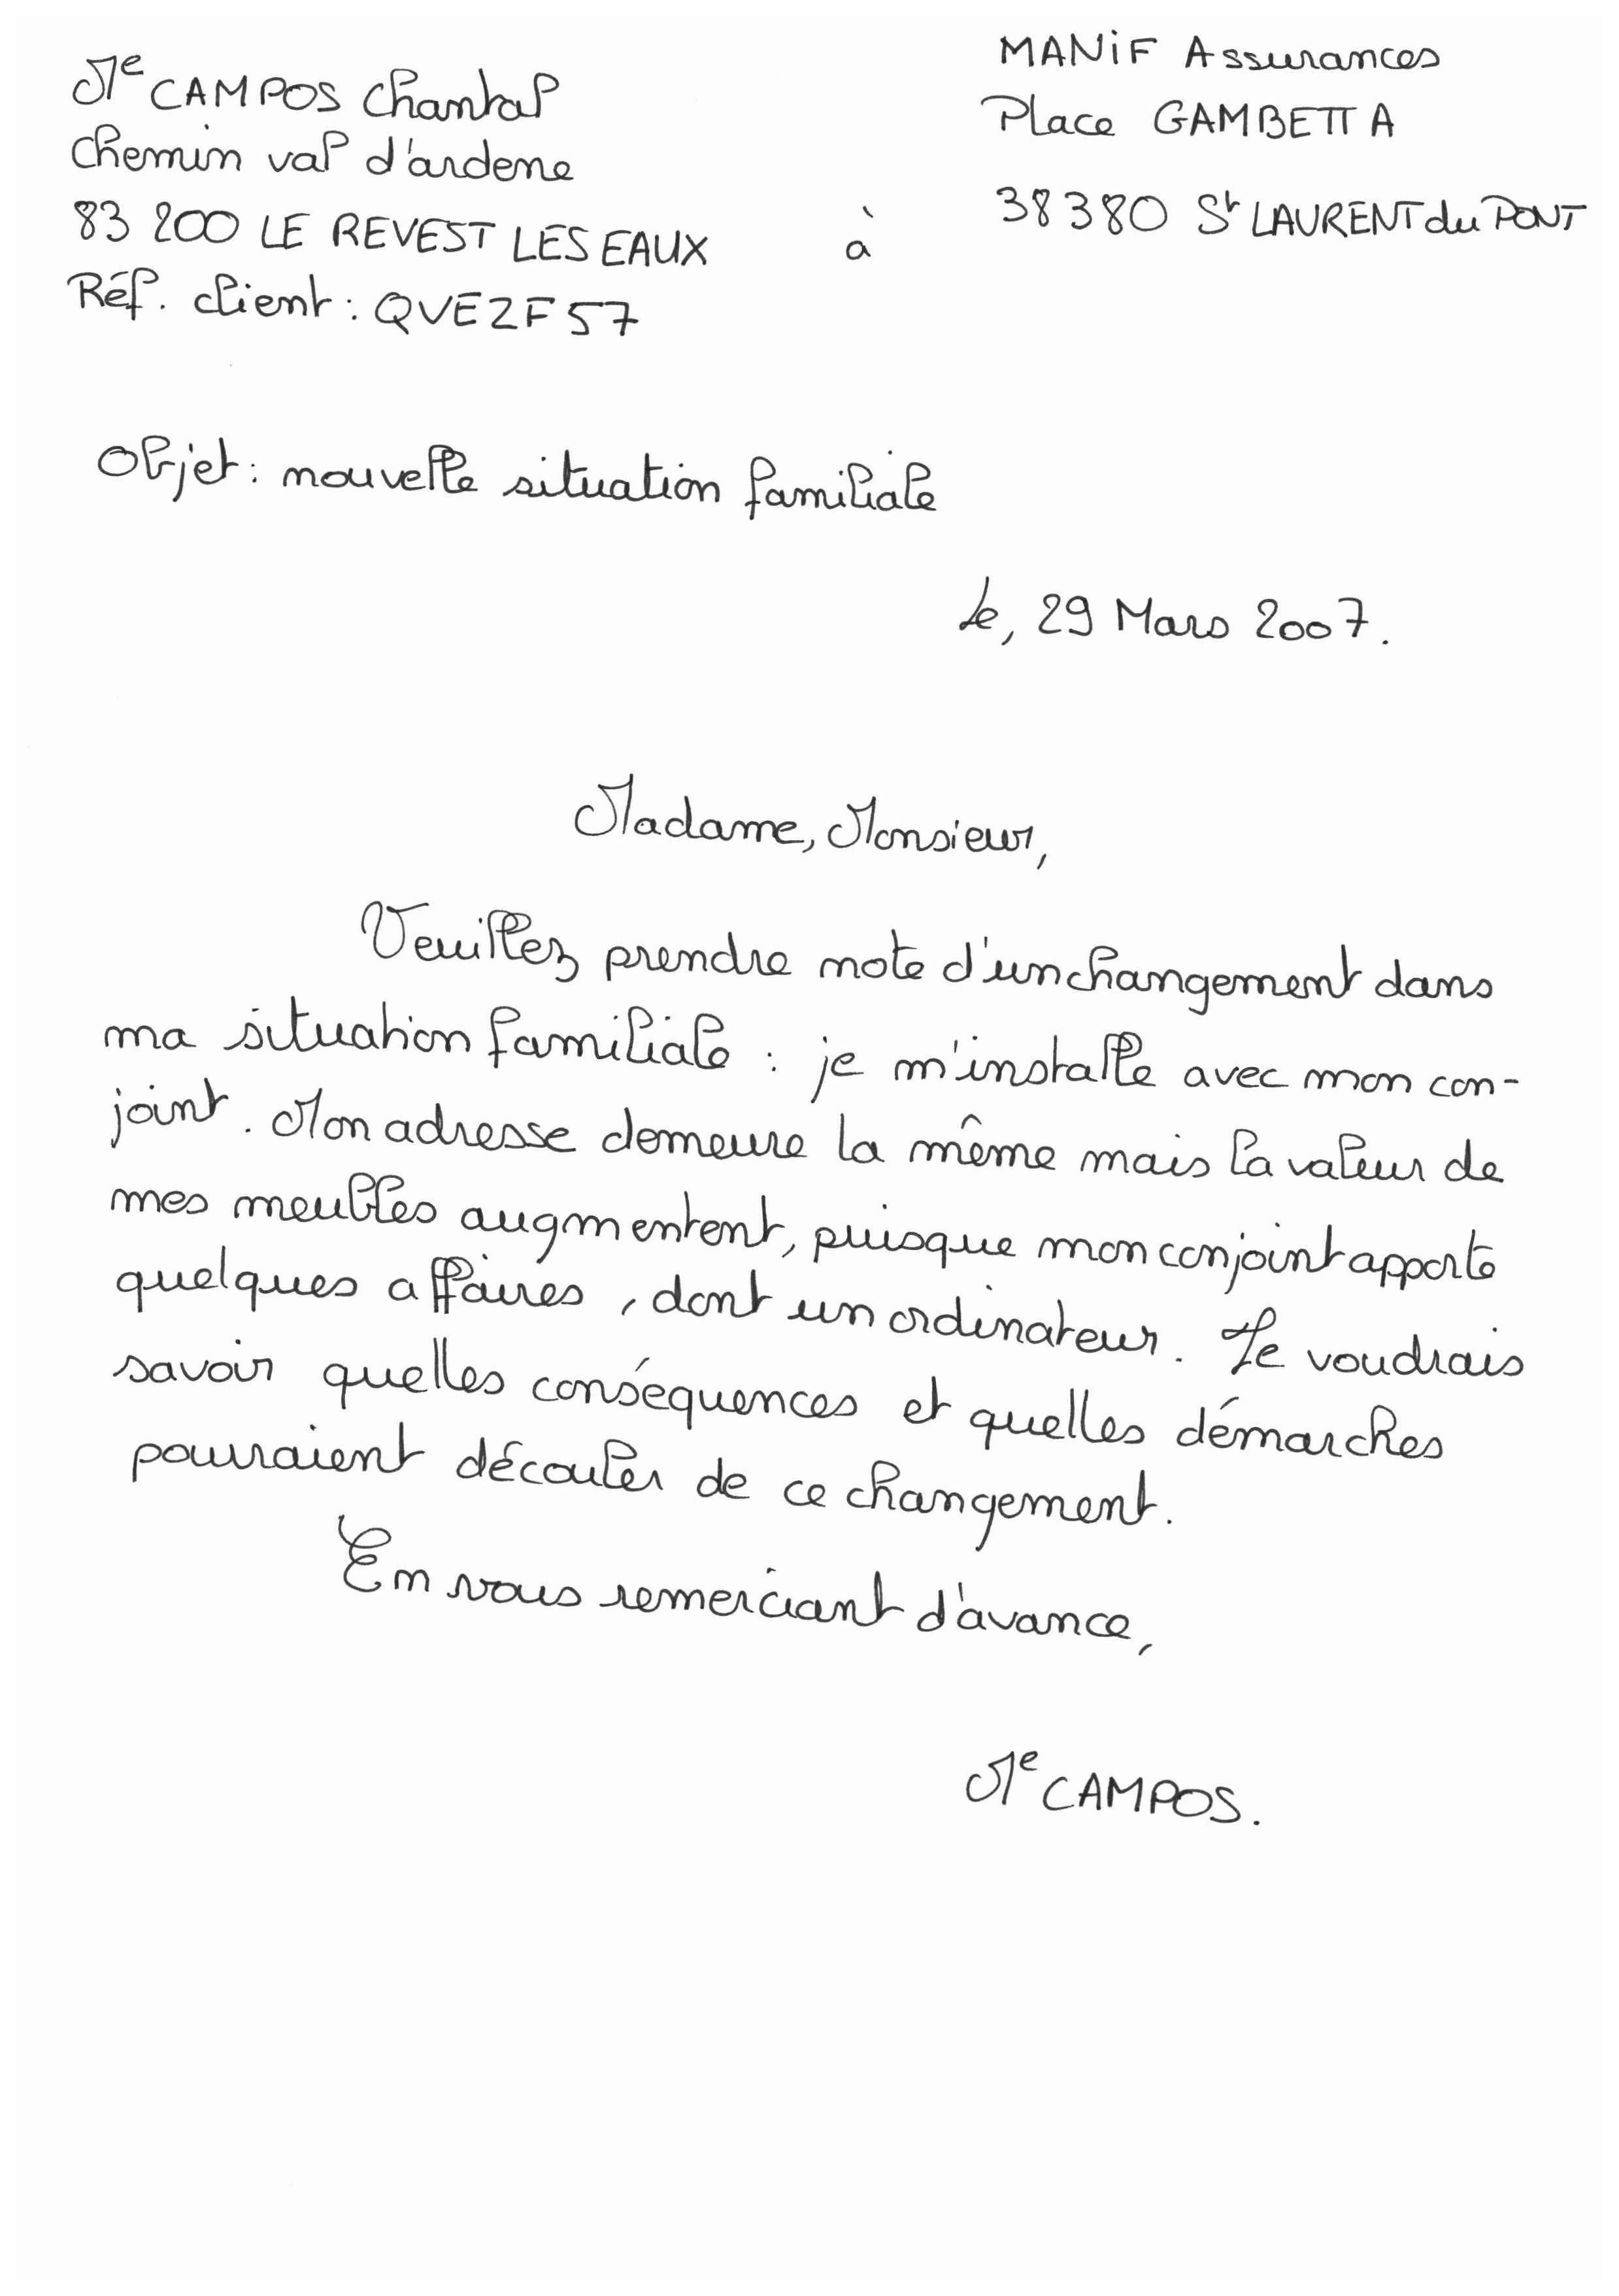 Me CAMPOS Chantal
Chemin val d'ardene
83 200 LE REVEST LES EAUX
Réf. client : QVEZF57
à
MANiF Assurances
Place GAMBETTA
38380 St LAURENT du PONT
Objet : nouvelle situation familiale
Le, 29 Mars 2007.
Madame, Monsieur,
Veuillez prendre note d'un changement dans
ma situation familiale : je m'installe avec mon con-
joint. Mon adresse demeure la même mais la valeur de
mes meubles augmentent, puisque mon conjoint apporte
quelques affaires, dont un ordinateur. Je voudrais
savoir quelles conséquences et quelles démarches
pourraient découler de ce changement.
En vous remerciant d'avance,
Me CAMPOS.